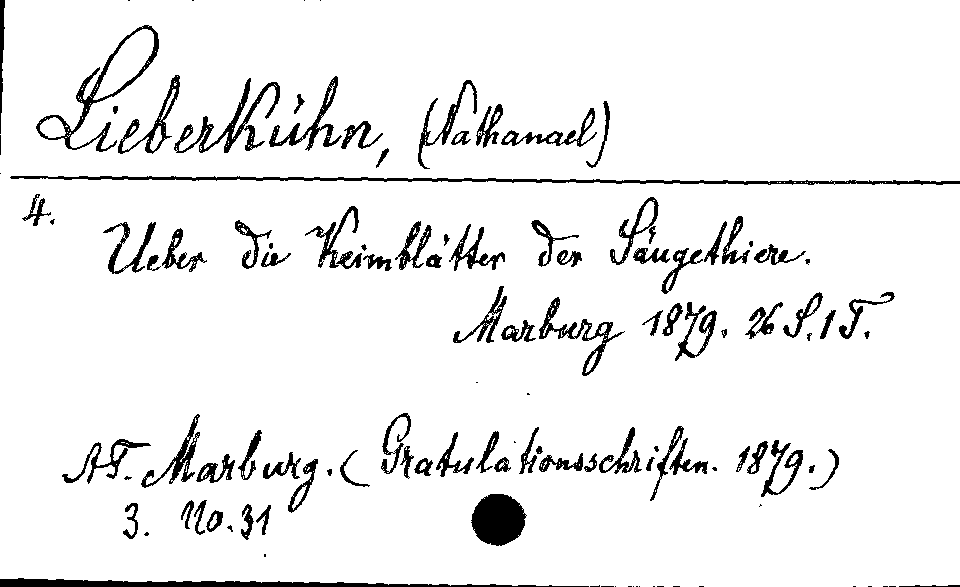 Lieberkühn, (Nathanael)
4.
Ueber die Keimblätter der Säugethiere.
Marburg 1879. 26 S. 1 T.
AT. Marburg. (Gratulationsschriften. 1879.)
3. No. 31